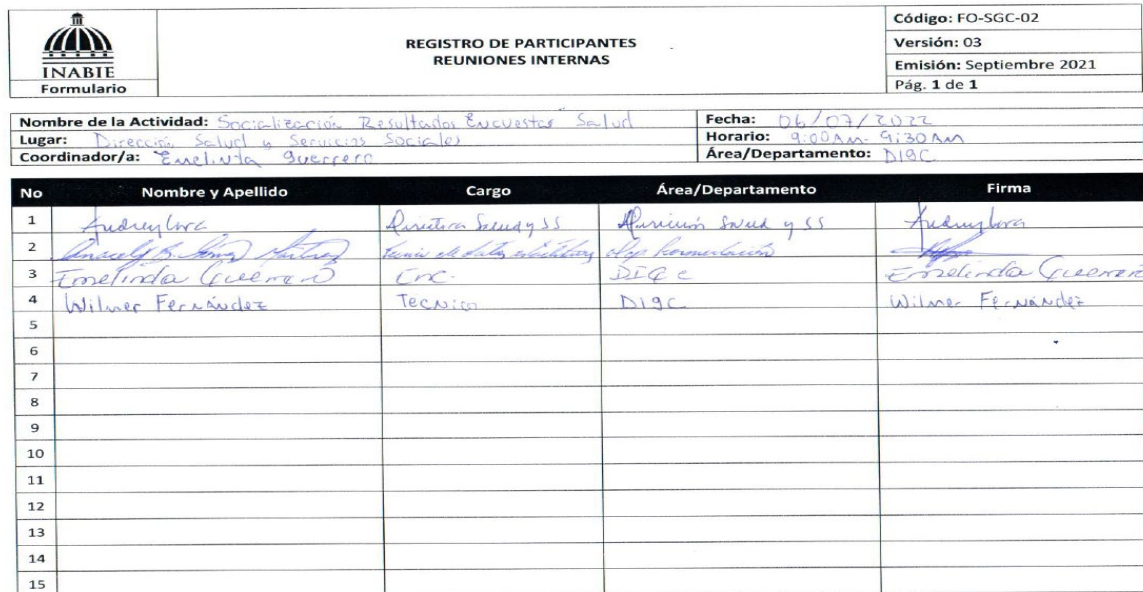 INABIE
Formulario
REGISTRO DE PARTICIPANTES
REUNIONES INTERNAS
Código: FO-SGC-02
Versión: 03
Emisión: Septiembre 2021
Pág. 1 de 1
Nombre de la Actividad: Socialización Resultados Encuestas Salud
Fecha: 06/07/2022
Lugar: Dirección Salud y Servicios Sociales
Horario: 9:00 AM - 9:30 AM
Coordinador/a: Guerrero
Área/Departamento: DIGC
No Nombre y Apellido Cargo Área/Departamento Firma
1 Audrey Lora Salud y SS Salud y SS Audrey Lora
2
3 Emelinda Guerrero Enc. Emelinda Guerrero
4 Wilmer Fernández Tecnico DIGC Wilmer Fernández
5
6
7
8
9
10
11
12
13
14
15